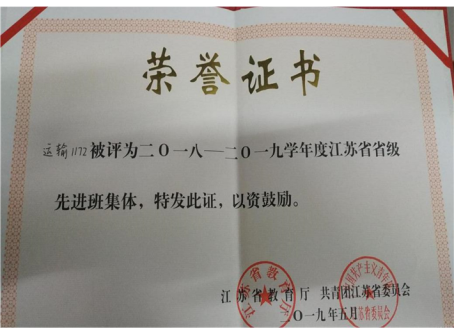 荣誉证书
运输1172被评为二〇一八—二〇一九学年度江苏省省级
先进班集体，特发此证，以资鼓励。
江苏省教育厅 共青团江苏省委员会
〇一九年五月
江苏省教育厅